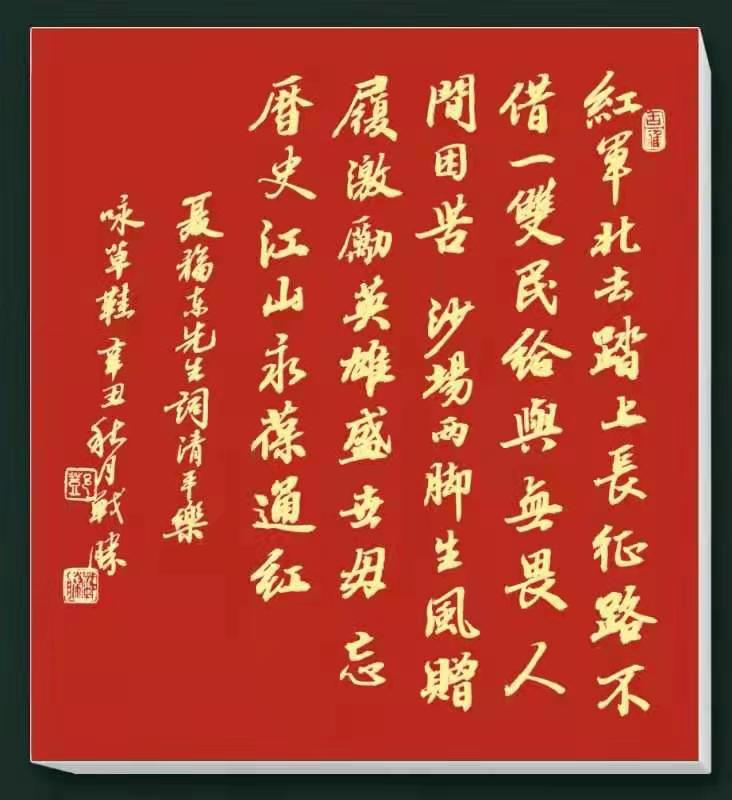 紅軍北去踏上長征路不
借一雙民給與無畏人
間困苦 沙場兩脚生風贈
履激勵英雄盛世毋忘
曆史江山永葆通紅
聂福东先生詞清平樂
咏草鞋辛丑秋月戰勝